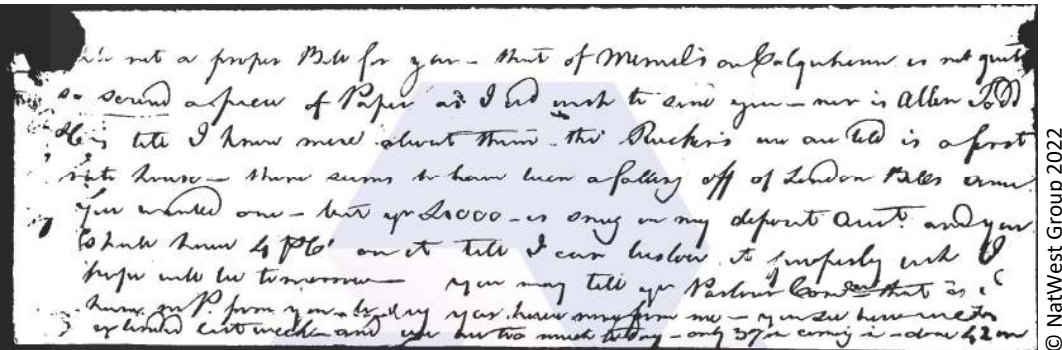 is not a proper Bill for you - that of Merrils on Colquhoun is not quite
so sound a piece of Paper as I wd wish to send you - nor is Allen Todd
& Co's till I know more about them - the Ruckers we are told is a first
rate house - there seems to have been a falling off of London Bills since
you wanted one - but yr £4000 - is snug in my deposit Acct. and you
shall have 4 PCt on it till I can bestow it properly wch I
hope will be tomorrow - you may tell yr Parlour that as I
have no P. from you to day you have none from me - you see how
last week - and we have too much to day - only 37 in coming in - done 42
© NatWest Group 2022